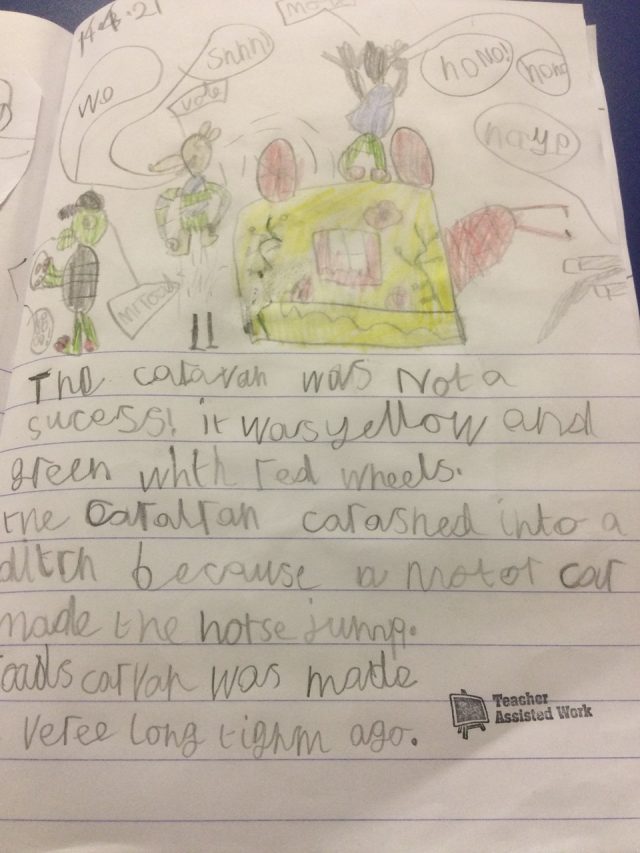 14.4.21
mole
Snhh!
vole
wo
ho No!
hono
nayp
Mr Toad
The caravan was Not a
sucess! it was yellow and
green whth red wheels.
the caravan carashed into a
ditch because a motor car
made the horse jump.
oads carvan was made
veree long tighm ago.
Teacher
Assisted Work